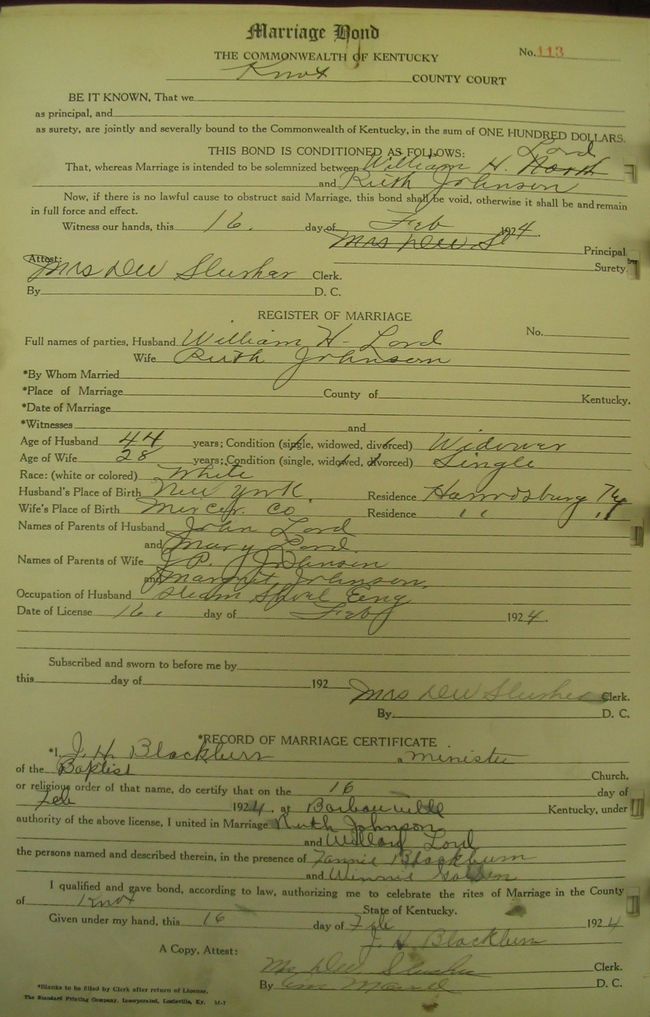 Marriage Bond
THE COMMONWEALTH OF KENTUCKY
No. 113
Knox COUNTY COURT
BE IT KNOWN, That we
as principal, and
as surety, are jointly and severally bound to the Commonwealth of Kentucky, in the sum of ONE HUNDRED DOLLARS.
THIS BOND IS CONDITIONED AS FOLLOWS: Lord
That, whereas Marriage is intended to be solemnized between William H.
and Ruth Johnson
Now, if there is no lawful cause to obstruct said Marriage, this bond shall be void, otherwise it shall be and remain
in full force and effect.
Witness our hands, this 16. day of Feb 1924.
Mrs Principal
Surety.
Attest:
Mrs Slusher Clerk.
By D. C.
REGISTER OF MARRIAGE
No.
Full names of parties, Husband William H. Lord
Wife Ruth Johnson
*By Whom Married
*Place of Marriage County of Kentucky.
*Date of Marriage
*Witnesses and
Age of Husband 44 years; Condition (single, widowed, divorced) Widower
Age of Wife 28 years; Condition (single, widowed, divorced) Single
Race: (white or colored) White
Husband's Place of Birth New York. Residence Harrodsburg Ky
Wife's Place of Birth Mercer Co Residence " "
Names of Parents of Husband John Lord
and Mary Lord.
Names of Parents of Wife J. P. Johnson
and Margret Johnson.
Occupation of Husband Steam Shovl Eng
Date of License 16. day of Feb 1924.
Subscribed and sworn to before me by
this day of 192
Mrs Slusher Clerk.
By D. C.
*RECORD OF MARRIAGE CERTIFICATE
*I, J. H. Blackburn a minister
of the Baptist Church,
or religious order of that name, do certify that on the 16 day of
Feb 1924. at Barbourville Kentucky, under
authority of the above license, I united in Marriage Ruth Johnson
and Lord
the persons named and described therein, in the presence of Fannie Blackburn
and Winnie Golden
I qualified and gave bond, according to law, authorizing me to celebrate the rites of Marriage in the County
of Knox State of Kentucky.
Given under my hand, this 16 day of Feb 1924
J. H. Blackburn
A Copy, Attest:
Mrs Slusher Clerk.
By D. C.
*Blanks to be filed by Clerk after return of License.
The Standard Printing Company, Incorporated, Louisville, Ky.